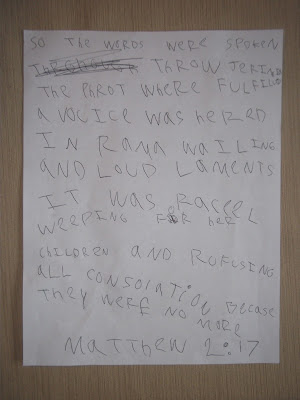 SO THE WERDS WERE SPOKEN
THROW JERIMI
THE PHROT WHERE FULFILD
A VOUICE WAS HERED
IN RAMA WAILING
AND LOUD LAMENTS
IT WAS RACEL
WEEPING FOR HER
CHILDREN AND RUFUSING
ALL CONSOLATION BECASE
THEY WERE NO MORE
MATTHEW 2:17